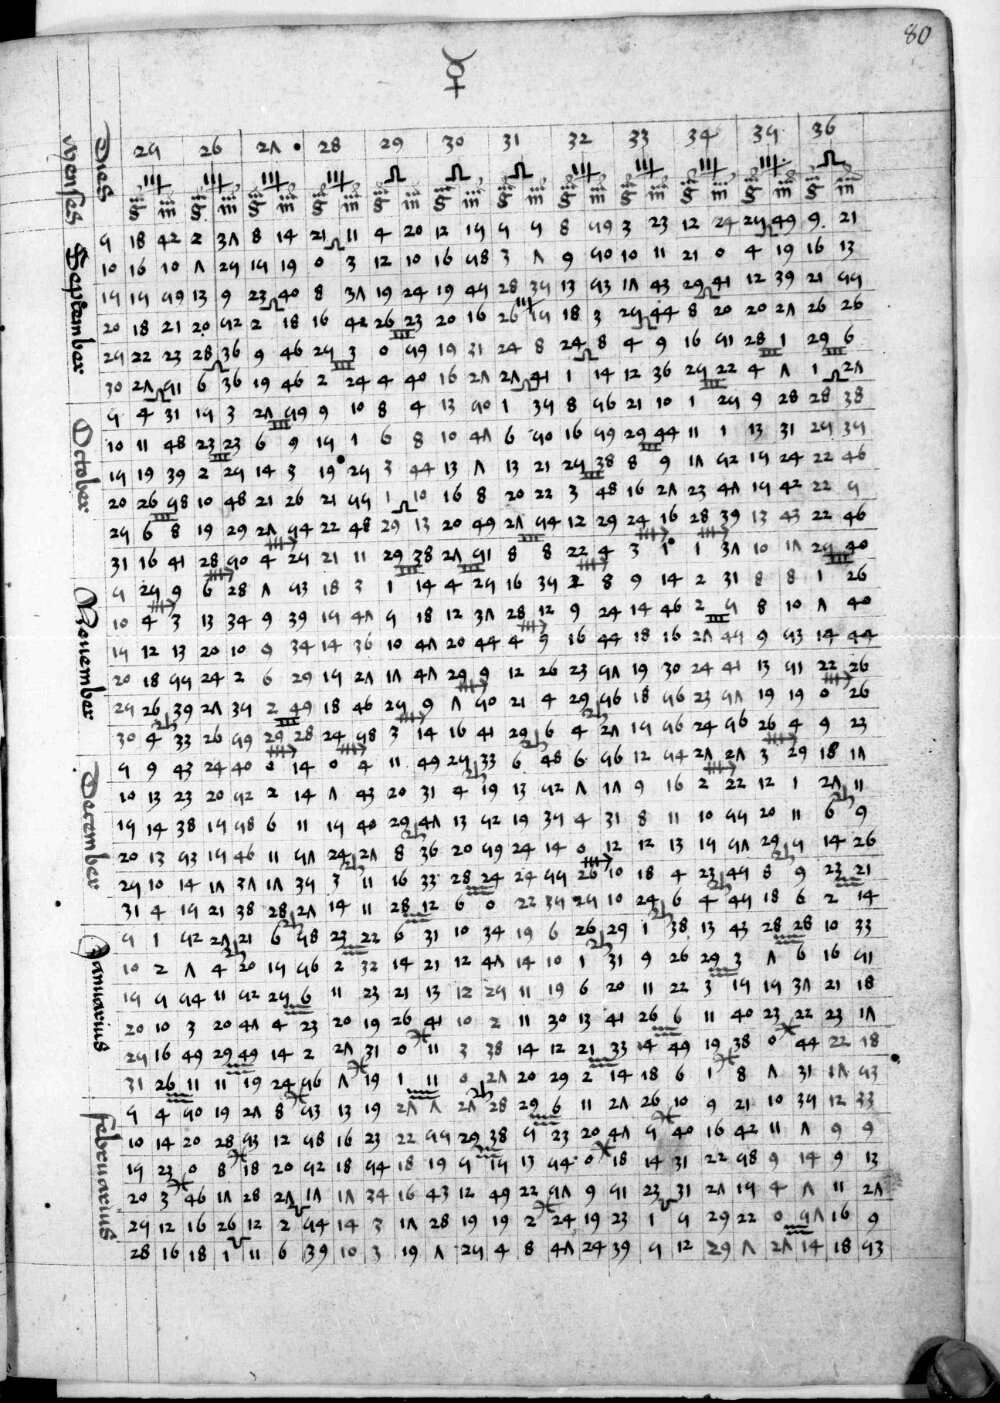 80
☿
Dies
Menses
25 26 27 28 29 30 31 32 33 34 35 36
♍ ♍ ♍ ♍ ♎ ♎ ♎ ♍ ♍ ♍ ♍ ♎
g m g m g m g m g m g m g m g m g m g m g m g m
September
5 18 42 2 37 8 14 21 11 4 20 12 15 5 5 8 53 3 23 12 24 25 45 9 21
10 16 10 7 25 15 19 0 3 12 10 16 58 3 7 9 50 10 11 21 0 4 19 16 13
15 15 59 13 9 23 40 8 37 19 24 19 45 28 35 13 53 17 43 29 41 12 39 21 55
20 18 21 20 52 2 18 16 42 26 23 20 16 26 15 18 3 25 44 8 20 20 27 26 26
25 22 23 28 36 9 46 25 3 0 59 19 31 24 8 24 8 4 9 16 51 28 1 29 6
30 27 51 6 36 19 46 2 24 4 40 16 27 27 41 1 14 12 36 25 22 4 7 1 27
October
5 4 31 15 3 27 59 9 10 8 4 13 50 1 35 8 56 21 10 1 25 9 28 28 38
10 11 48 23 23 6 9 15 1 6 8 10 47 6 50 16 59 29 44 11 1 13 31 25 35
15 19 39 2 25 14 3 19 25 3 44 13 7 13 21 25 38 8 9 17 52 15 24 22 46
20 26 58 10 48 21 26 21 55 1 10 16 8 20 22 3 48 16 27 23 47 15 42 22 9
25 6 8 19 29 27 54 22 48 29 13 20 49 27 54 12 29 24 16 28 39 13 43 22 46
31 16 41 28 50 4 25 21 11 29 38 27 51 8 8 22 4 3 1 1 37 10 17 25 40
Nouember
5 25 9 6 28 7 53 18 3 1 14 4 25 16 35 2 8 9 14 2 31 8 8 1 26
10 4 3 13 34 9 39 15 47 5 18 12 37 28 12 9 24 14 46 2 5 8 10 7 40
15 12 13 20 10 9 34 14 36 10 47 20 44 4 9 16 44 18 16 27 45 9 53 14 44
20 18 55 24 2 6 29 15 27 17 47 29 9 12 26 23 57 19 30 24 41 13 51 22 26
25 26 39 27 35 2 49 18 46 25 9 7 50 21 4 29 56 18 56 23 57 19 19 0 26
30 4 33 26 59 29 28 24 58 3 14 16 41 29 6 4 27 15 56 24 56 26 4 9 23
December
5 9 43 24 40 0 14 0 4 11 49 25 33 6 48 6 56 12 54 27 27 3 29 18 17
10 13 23 20 52 2 14 7 43 20 31 4 19 13 52 7 17 9 16 2 22 12 1 27 11
15 14 38 15 58 6 11 15 40 29 47 13 52 19 35 4 31 8 11 10 55 20 11 6 9
20 13 53 15 46 11 57 24 27 8 36 20 59 24 14 0 12 12 13 19 57 29 5 14 26
25 10 14 17 37 17 35 3 11 16 33 28 24 24 55 26 10 18 4 23 45 8 9 23 21
31 4 15 21 38 28 27 14 11 28 12 6 0 22 35 25 10 24 6 4 45 18 6 2 14
Januarius
5 1 52 27 21 6 58 23 22 6 31 10 34 19 6 26 29 1 38 13 43 28 28 10 33
10 2 7 4 20 15 56 2 32 14 21 12 47 14 10 1 31 9 26 29 3 7 6 16 51
15 5 54 11 52 25 6 11 23 21 13 12 25 11 19 6 20 11 22 3 15 15 37 21 18
20 10 3 20 47 4 23 20 19 26 41 10 2 11 30 13 41 26 6 11 40 23 22 23 17
25 16 49 29 49 14 2 27 31 0 11 3 38 14 12 21 33 14 49 19 38 0 44 22 18
31 26 11 11 19 24 56 7 19 1 11 0 27 20 29 2 14 18 6 1 8 7 31 17 53
Februarius
5 4 50 19 27 8 53 13 19 27 7 27 28 29 6 11 27 26 10 9 21 10 35 12 33
10 14 20 28 53 12 58 16 23 22 55 29 38 5 23 20 47 5 40 16 42 11 7 9 9
15 23 0 8 18 20 52 18 54 18 19 5 15 13 54 0 18 14 31 22 58 9 14 9 13
20 3 46 17 28 27 17 17 34 16 43 12 49 22 57 9 51 23 31 27 15 4 7 11 27
25 12 16 26 12 2 54 14 3 17 28 19 19 2 24 19 23 1 5 29 22 0 57 16 9
28 16 18 1 11 6 39 10 3 19 7 25 4 8 47 24 39 5 12 29 7 27 14 18 53